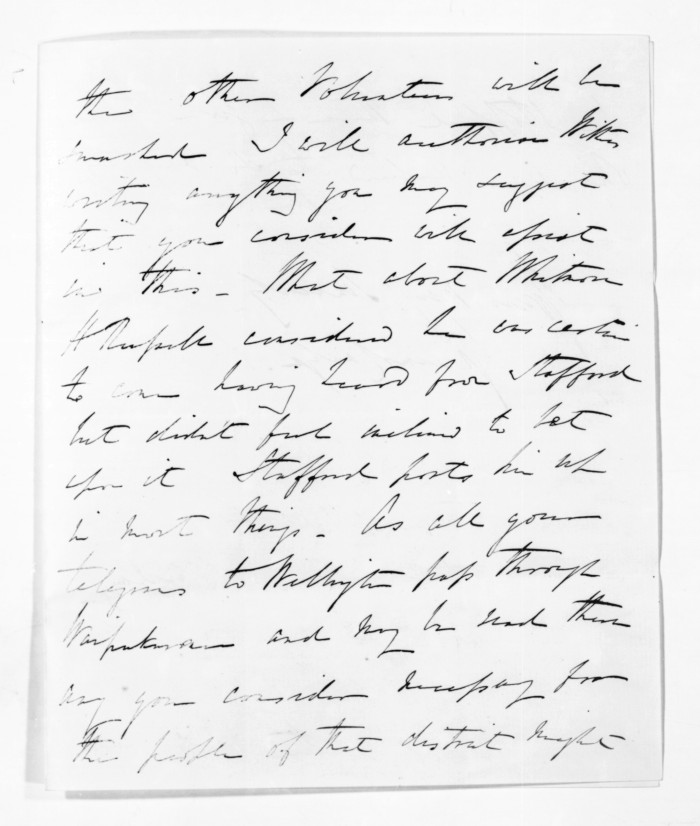 the other Volunteers will be
smashed I will authorise
writing anything you may suggest
that you consider will assist
in this - What about Whitmore
H Russell considered he was certain
to come having heard from Stafford
but didnt feel inclined to bet
upon it Stafford posts him up
in most things - As all your
telegrams to Wellington pass through
Waipukurau and may be read there
any you consider necessary for
the people of that district might